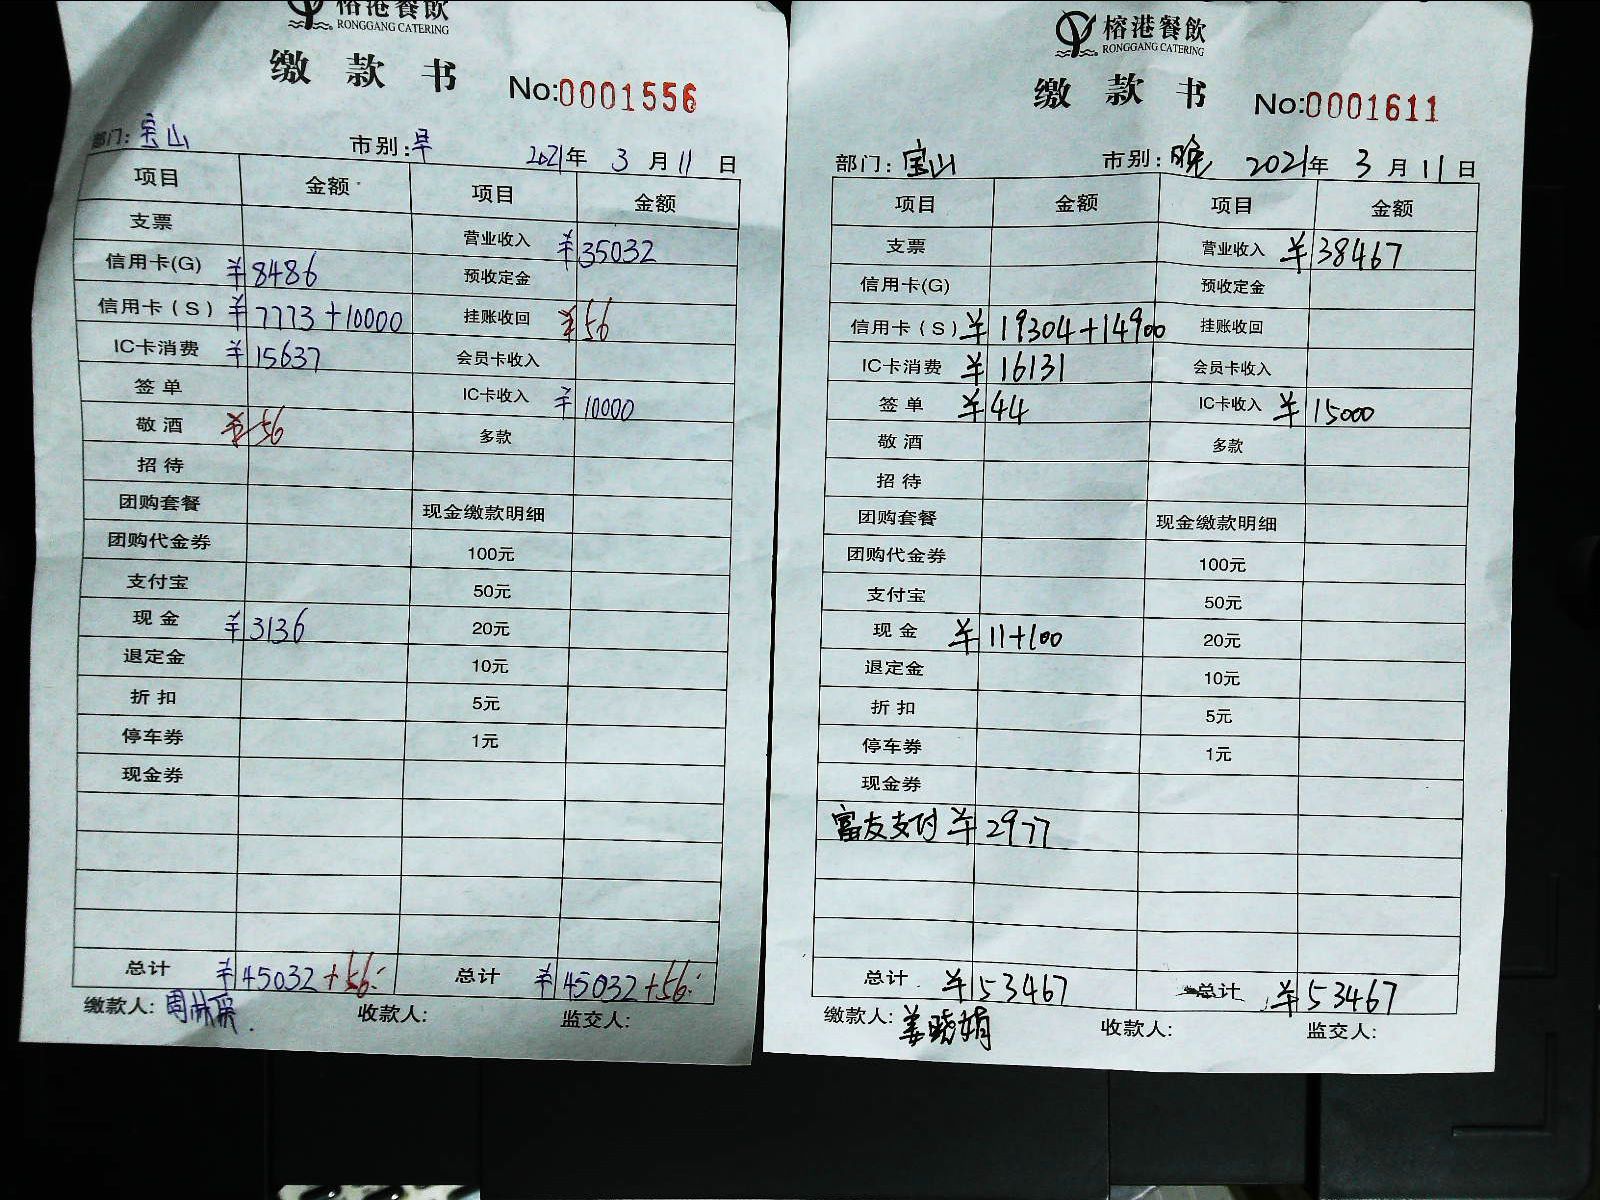 榕港餐飲
RONGGANG CATERING
缴款书 No:0001556
部门: 宝山 市别: 早 2021年 3月 11日
项目 金额 项目 金额
支票 营业收入 ¥35032
信用卡(G) ¥8486 预收定金
信用卡(S) ¥7773+10000 挂账收回 ¥56
IC卡消费 ¥15637 会员卡收入
签单 IC卡收入 ¥10000
敬酒 ¥56 多款
招待
团购套餐 现金缴款明细
团购代金券 100元
支付宝 50元
现金 ¥3136 20元
退定金 10元
折扣 5元
停车券 1元
现金券
总计 ¥45032+56. 总计 ¥45032+56.
缴款人: 周 收款人: 监交人:
榕港餐飲
RONGGANG CATERING
缴款书 No:0001611
部门: 宝山 市别: 晚 2021年 3月 11日
项目 金额 项目 金额
支票 营业收入 ¥38467
信用卡(G) 预收定金
信用卡(S) ¥19304+14900 挂账收回
IC卡消费 ¥16131 会员卡收入
签单 ¥44 IC卡收入 ¥15000
敬酒 多款
招待
团购套餐 现金缴款明细
团购代金券 100元
支付宝 50元
现金 ¥11+100 20元
退定金 10元
折扣 5元
停车券 1元
现金券
富友支付 ¥2977
总计 ¥53467 总计 ¥53467
缴款人: 姜晓娟 收款人: 监交人: